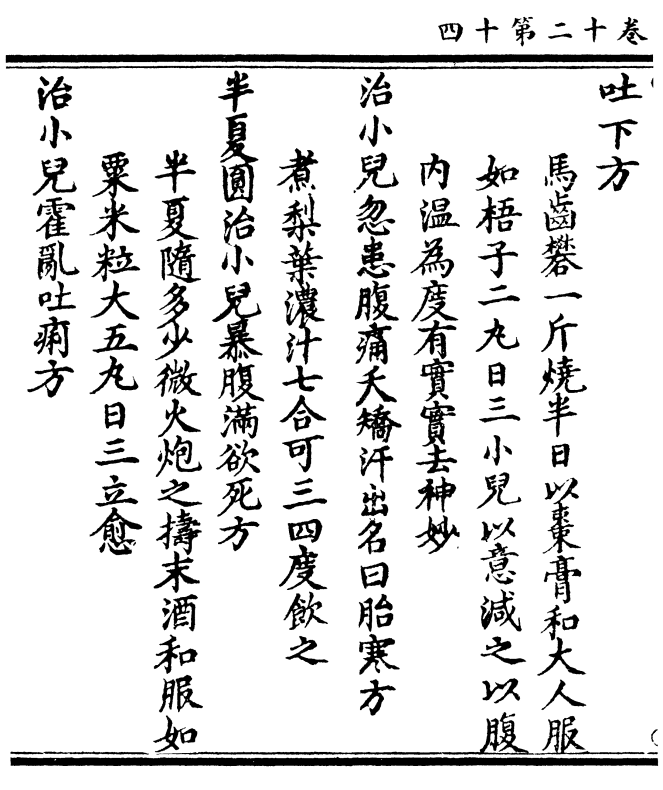 卷十二第十四
吐下方
馬齒礬一斤燒半日以棗膏和大人服
如梧子二丸日三小兒以意減之以腹
内温為度有實實去神妙
治小兒忽患腹痛夭矯汗出名曰胎寒方
煮梨葉濃汁七合可三四度飲之
半夏圓治小兒暴腹滿欲死方
半夏隨多少微火炮之擣末酒和服如
粟米粒大五丸日三立愈
治小兒霍亂吐痢方